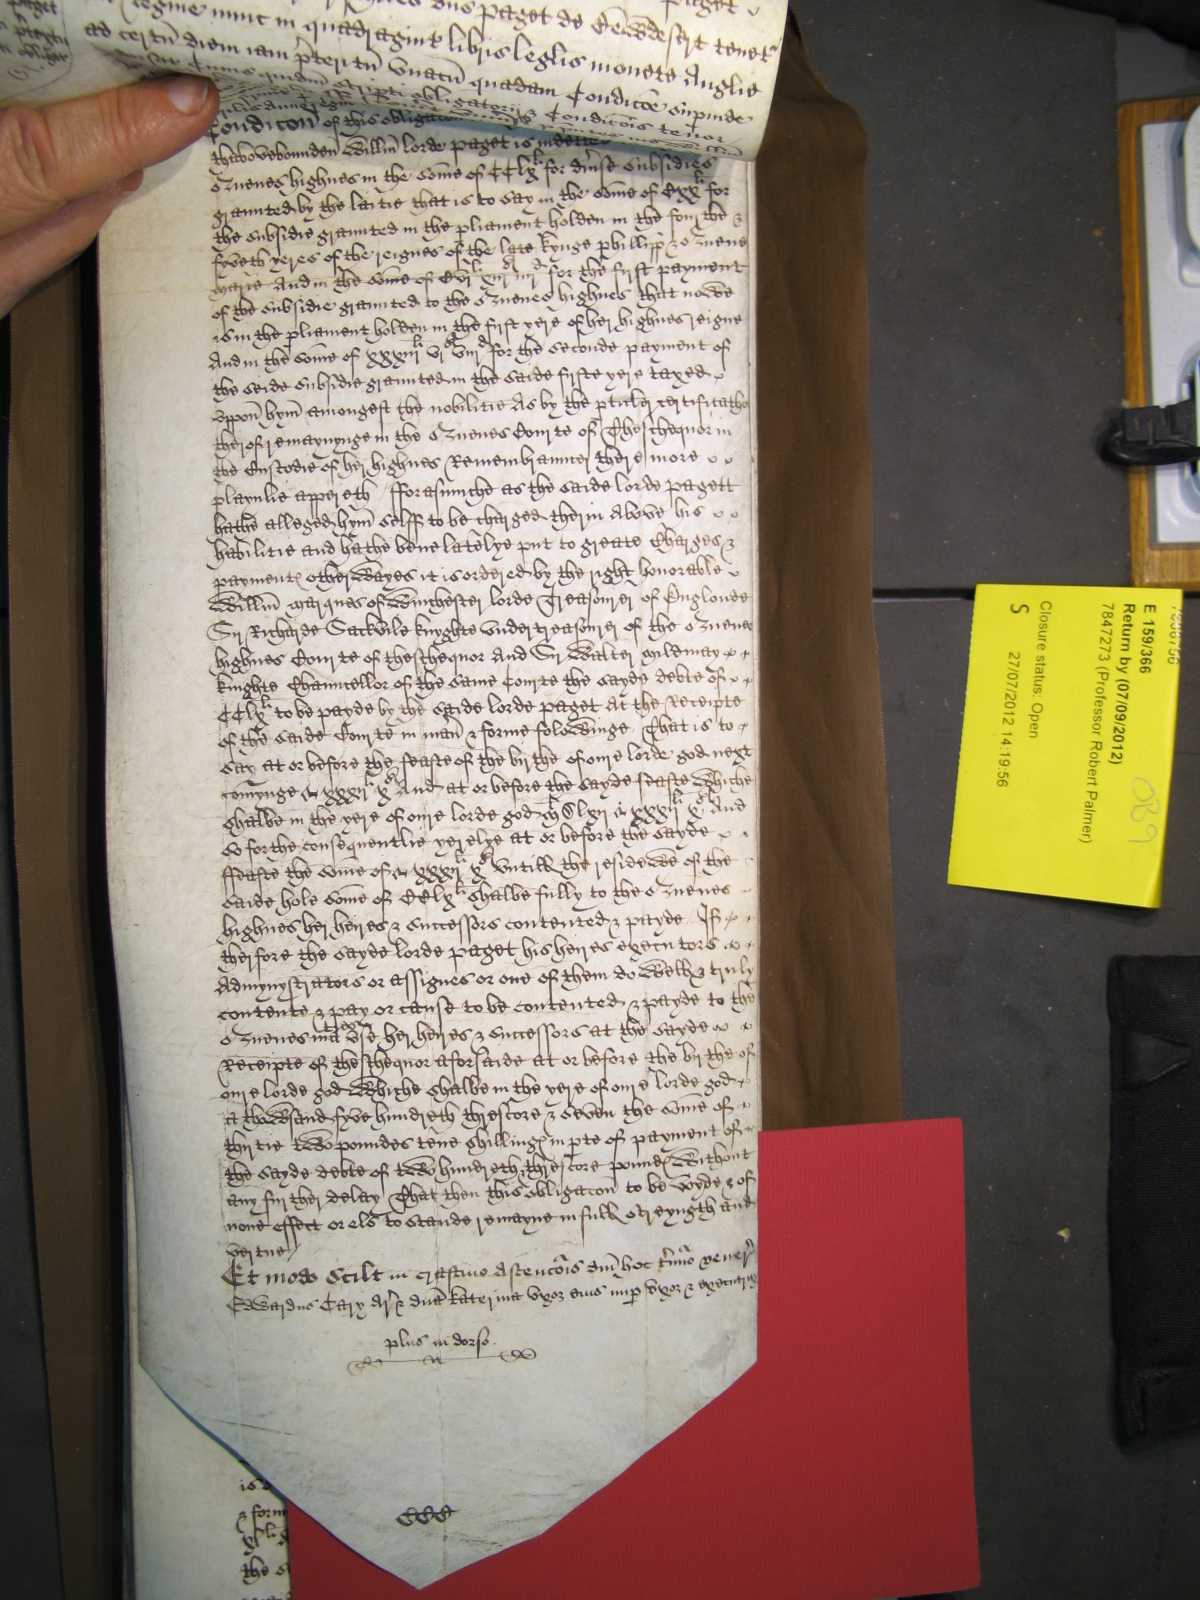 Regine nunc in quadragint libris leglis monete Anglie
ad certu diem iam preteritu unacu quadam Condicoe
Condicon of this obligacon
thabovebounden Willm lorde paget is indetted
Quenes highnes in the Some of CClxli for div'se Subsidies
graunted by the laitie that is to say in the Some of Cxxli for
the Subsidie graunted in the pliament holden in the fourthe &
fyveth yeres of the reignes of the late kynge phillipp & Quene
marie And in the Some of Cvili xiijs iiijd for the first payment
of the Subsidie graunted to the Quenes highnes that nowe
is in the pliament holden in the first yere of her highnes reigne
And in the Some of xxxiijli vis viijd for the Seconde payment of
the Seide Subsidie graunted in the Saide firste yere taxed
uppon hym amongest the nobilitie As by the pticler certificathe
therof remaynynge in the Quenes Courte of Theschequor in
the Custodie of her highnes Remembrauncer there more
playnlie appereth fforasmuche as the Saide lorde pagett
hathe alleged hym Selff to be charged therin Above his
habilitie and hathe bene latelye put to greate Charges &
payments otherwayes it is ordered by the right honorable
Willm marques of Winchester lorde Treasourer of Englonde
Sir Richarde Sackvile knyghte undertreasourer of the Quenes
highnes Courte of theschequor And Sir Walter myldmay
knighte Chauncellor of the Same Courte the Sayde debte of
CClxli to be payde by the Saide lorde paget At the Receipte
of the Saide Courte in man & forme folowinge That is to
Say at or before the feaste of the birthe of oure lorde god next
comynge xxxijli xs And at or before the Sayde feaste Whiche
Shalbe in the yere of oure lorde god mDlxij xxxijli xs And
So forthe consequentlie yerelye at or before the Sayde
ffeaste the Some of xxxijli xs untill the residewe of the
Saide hole Some of CClxli Shalbe fully to the Quenes
highnes her heires & Successors contented & payde If
therfore the Sayde lorde paget his heires executors
Admynystrators or assignes or one of them do Well & truly
contente & pay or cause to be contented & payde to the
Quenes matie her heires & Successors at the Sayde
Receipte of theschequor aforsaide at or before the birthe of
oure lorde god Whiche Shalbe in the yere of oure lorde god
a thowsand fyve hundreth threscore & Seven the Some of
thirtie two poundes tene Shillings in pte of payment of
the Sayde debte of two hundreth threscore pounds Without
any further delay That then this obligacon to be voyde & of
none effect or els to stande remayne in full Streyngth and
vertue
Et modo Scilt in crastino Ascencois dni hoc t'mio vener
Edwardus Cary Ar' & dna katerina uxor eius nup uxor & executrix
plus in dorso
E 159/366
Return by (07/09/2012)
7847273 (Professor Robert Palmer)
Closure status: Open
S 27/07/2012 14:19:56